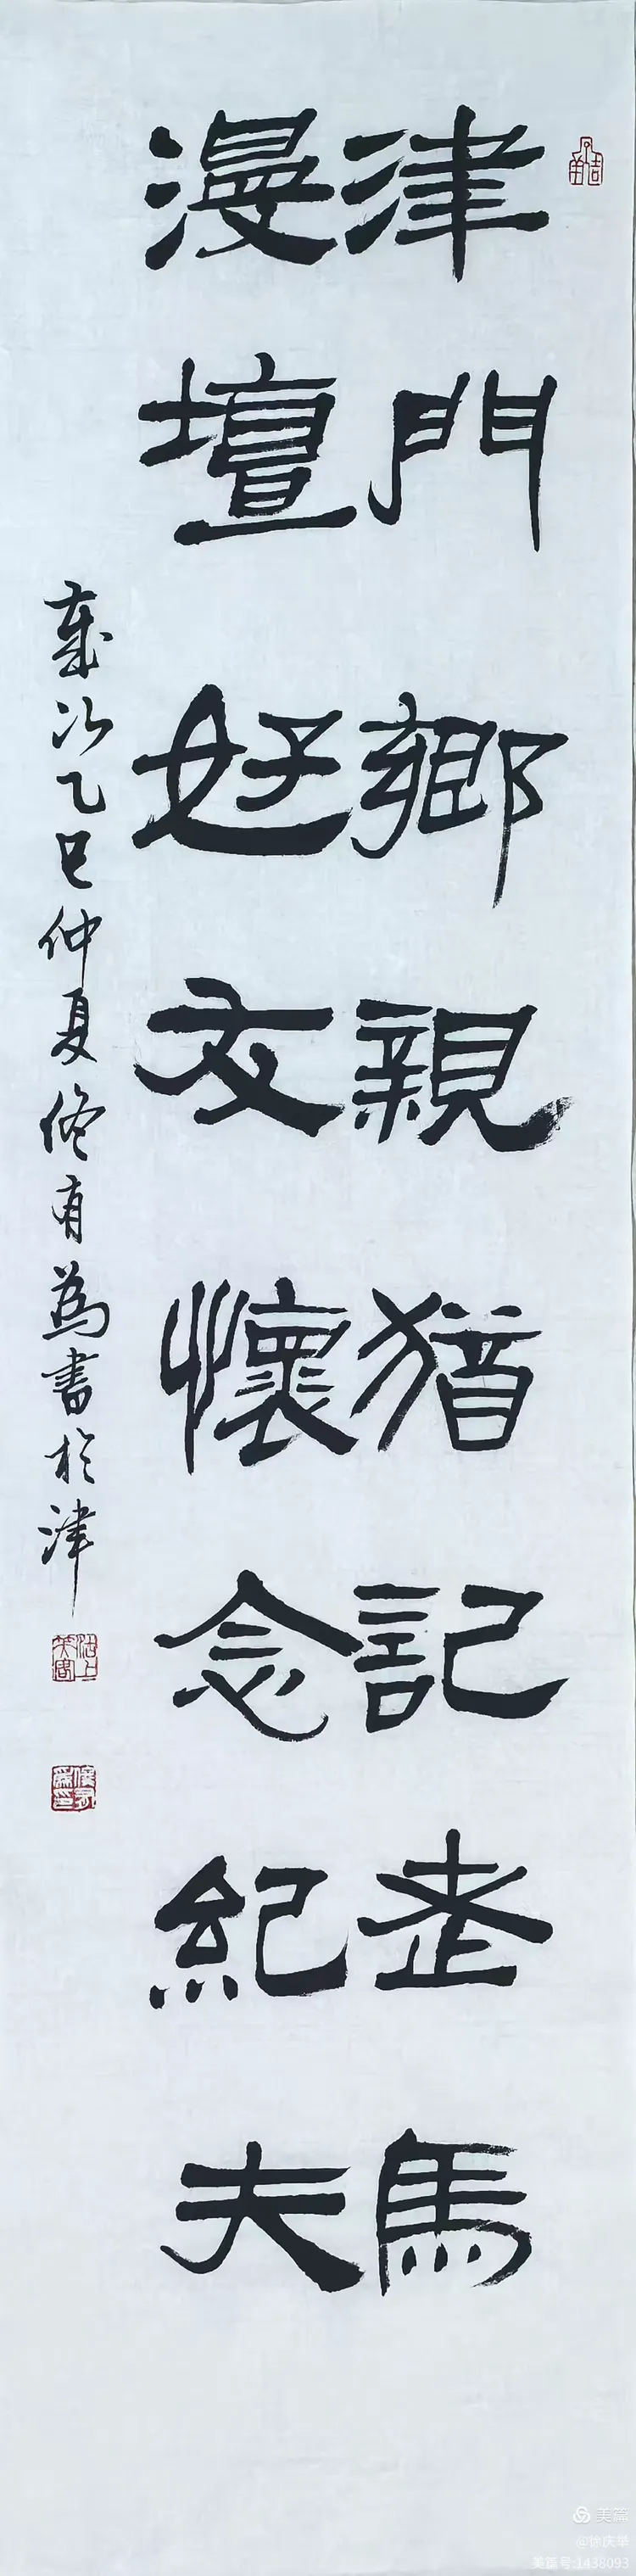 津門鄉親猶記老馬
漫壇好友懷念紀夫
歲次乙巳仲夏佟有為書於津
美篇
@徐庆举
美篇号:1438093